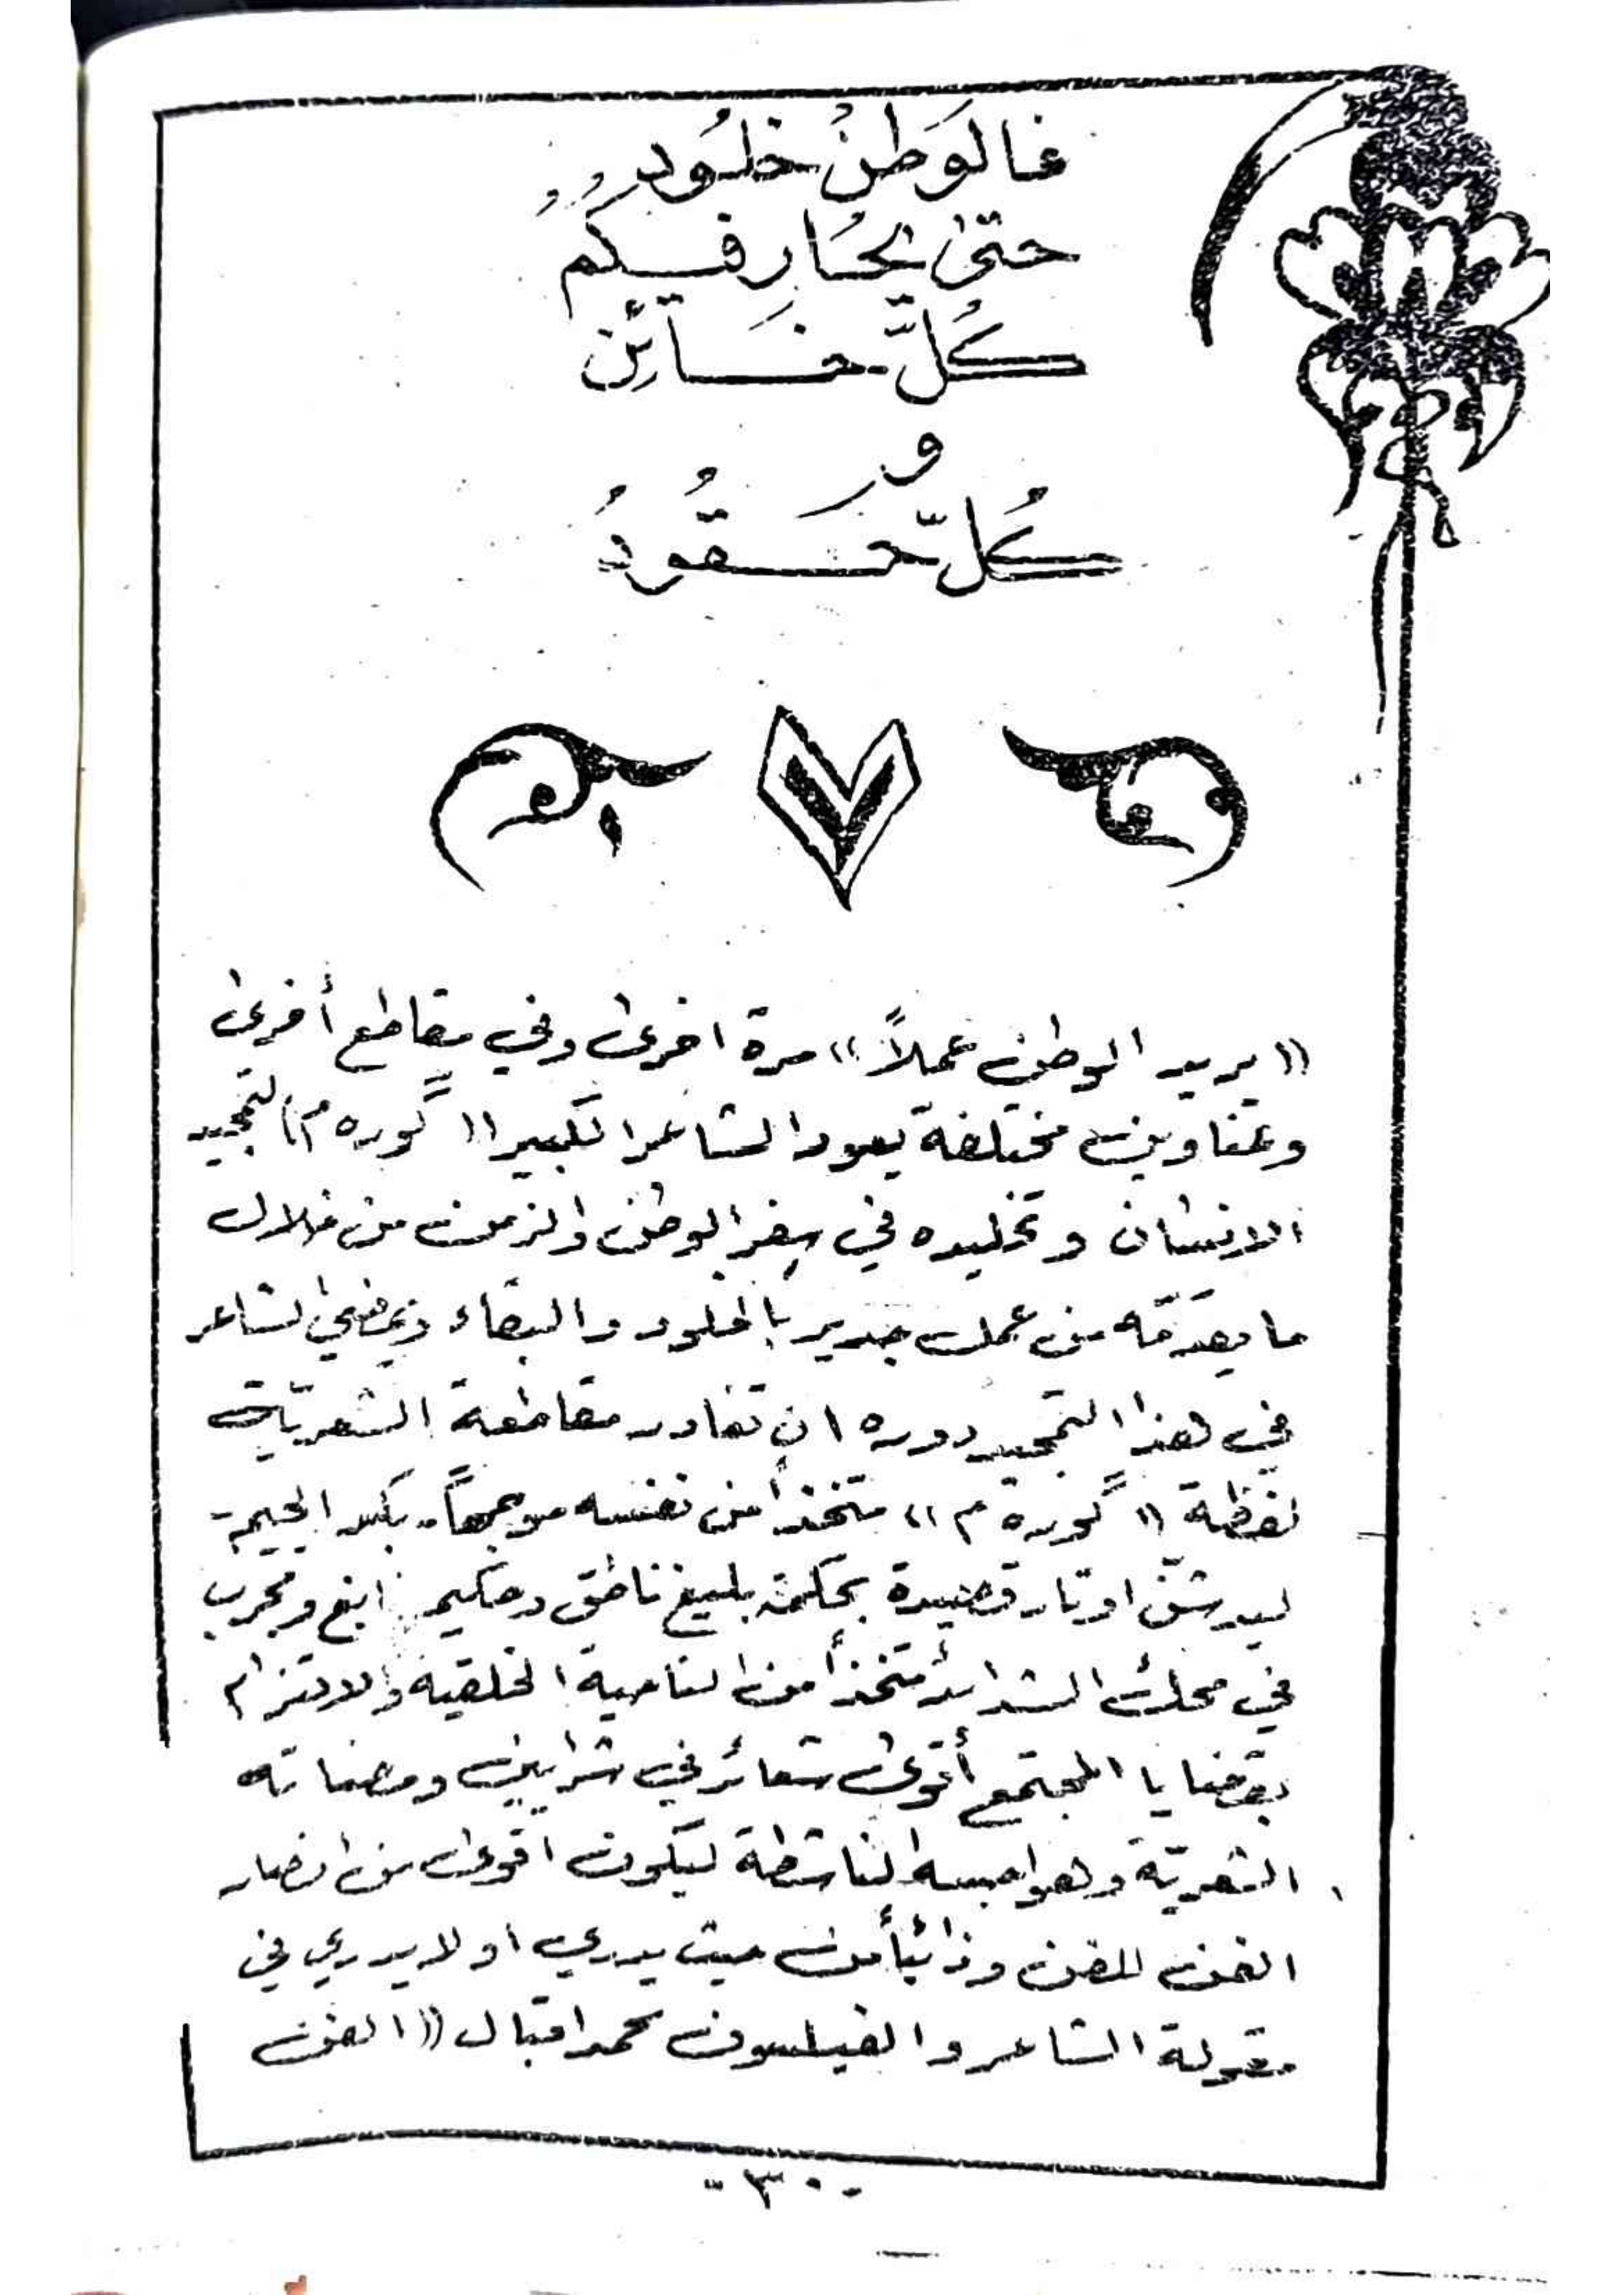 فالوَطنُ خلُودُ
حتىٰ يحُار فيكُم
كُلَّ خَائِن
و
كُلّ حَقُودُ
٧
((يريد الوطن عملاً)) مرة اخرىٰ وفي مقاطع أخرىٰ
وعناوين مختلفة يعود الشاعر الكبير (( گوره م )) لتمجيد
الانسان وتخليده في سِفر الوطن والزمن من خلال
ما يقدمّه من عمل جدير بالخلود والبقاء ويمضي الشاعر
في هذا التمجيد دوره ان تغادر مقاطعة الشعريّة
لفظة (( گوره م )) متخذاً من نفسه موجهاً ـ بكسر الجيم ـ
ليدشّن اوتار قصيدة بحكمة بليغ ناطق وحكيم نابغ ومجرب
في محك الشدائد متخذاً من الناحية الخلقية والالتزام
بقضايا المجتمع أقوىٰ شعائر في شرايين ومضاته
الشعريّة وهواجسه الناشطة ليكون اقوىٰ من انصار
الفن للفن وذائباً من حيث يدري او لا يدري في
مقولة الشاعر والفيلسوف محمد اقبال ((الفن
-٣٠-